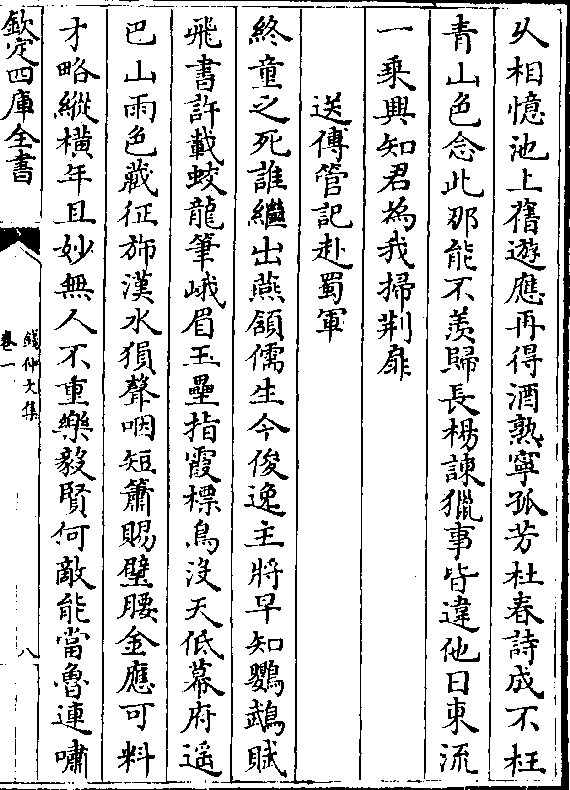 久相憶池上舊遊應再得酒熟寧孤芳杜春詩成不枉
青山色念此那能不羨歸長楊諫獵事皆違他日東流
一乘興知君為我掃荆扉
送傅管記赴蜀軍
終童之死誰繼出燕頷儒生今俊逸主將早知鸚鵡賦
飛書許載蛟龍筆峨眉玉壘指霞標鳥沒天低幕府遥
巴山雨色藏征旆漢水猿聲咽短簫賜璧腰金應可料
才略縱橫年且妙無人不重樂毅賢何敵能當魯連嘯
欽定四庫全書
錢仲文集
卷一
八